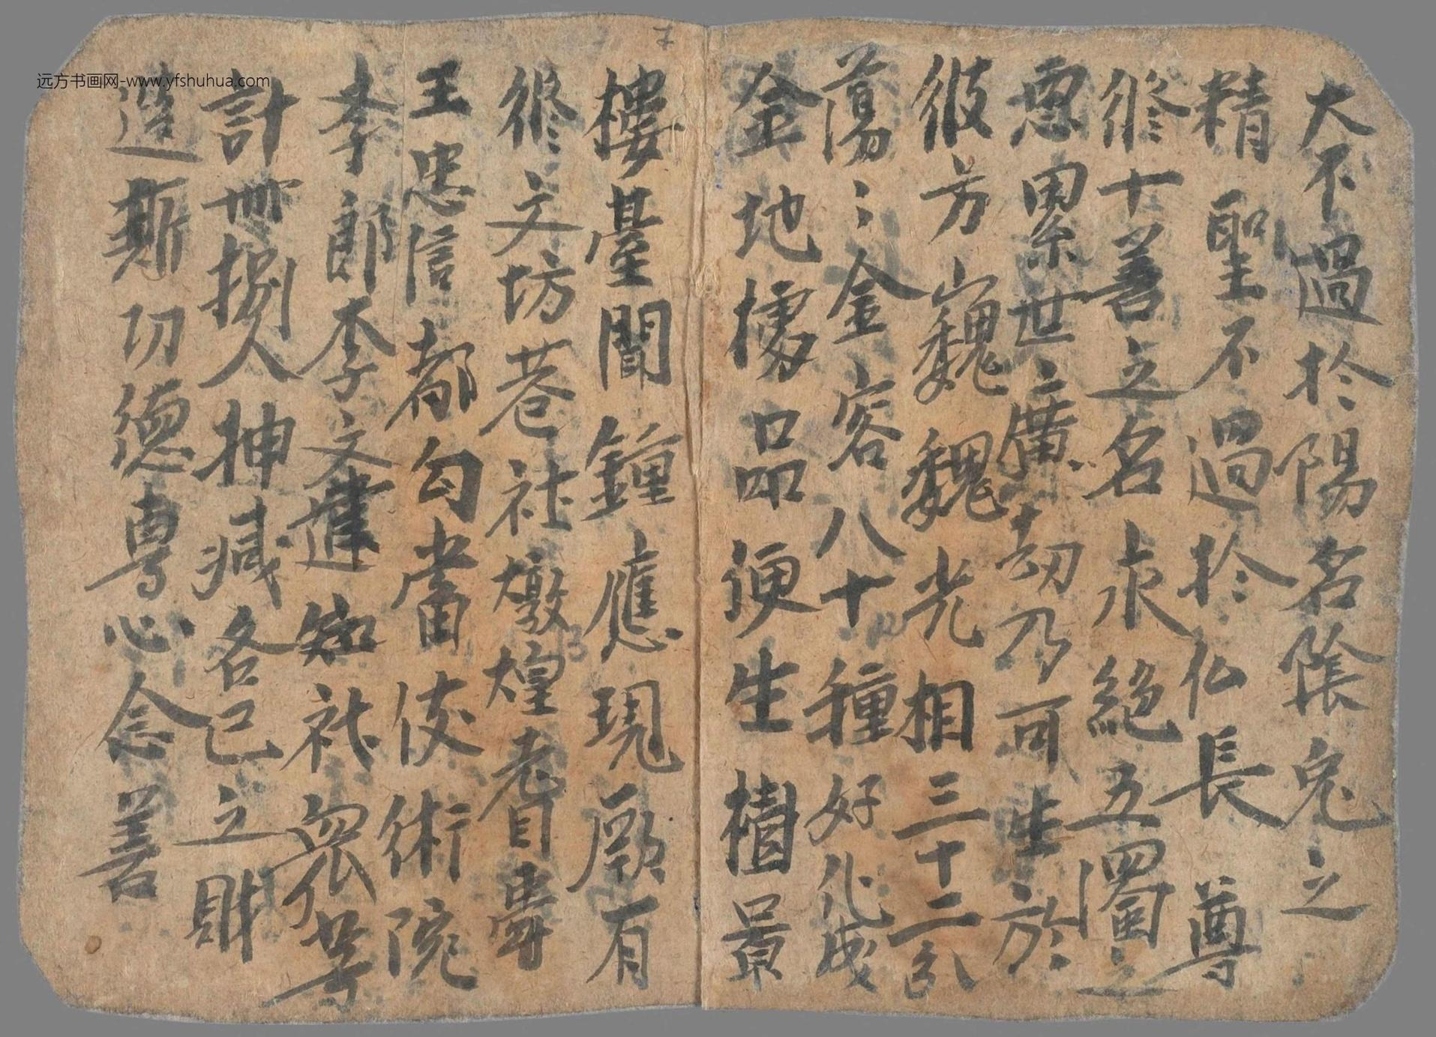 远方书画网-www.yfshuhua.com
大不過於陽名陰兔之
精聖不過於仏長尊
修十善之名永絕五濁之
惡累世廣劫乃可生於
彼方巍巍光相三十二
蕩〻金容八十種好化成
金地樓品便生樹景
樓臺聞鐘應現厥有
修文坊巷社燉煌耆壽
王忠信都勾當伎術院
李郎李文進知社衆等
計卌捌人抽減各己之財
造斯功德專心念善